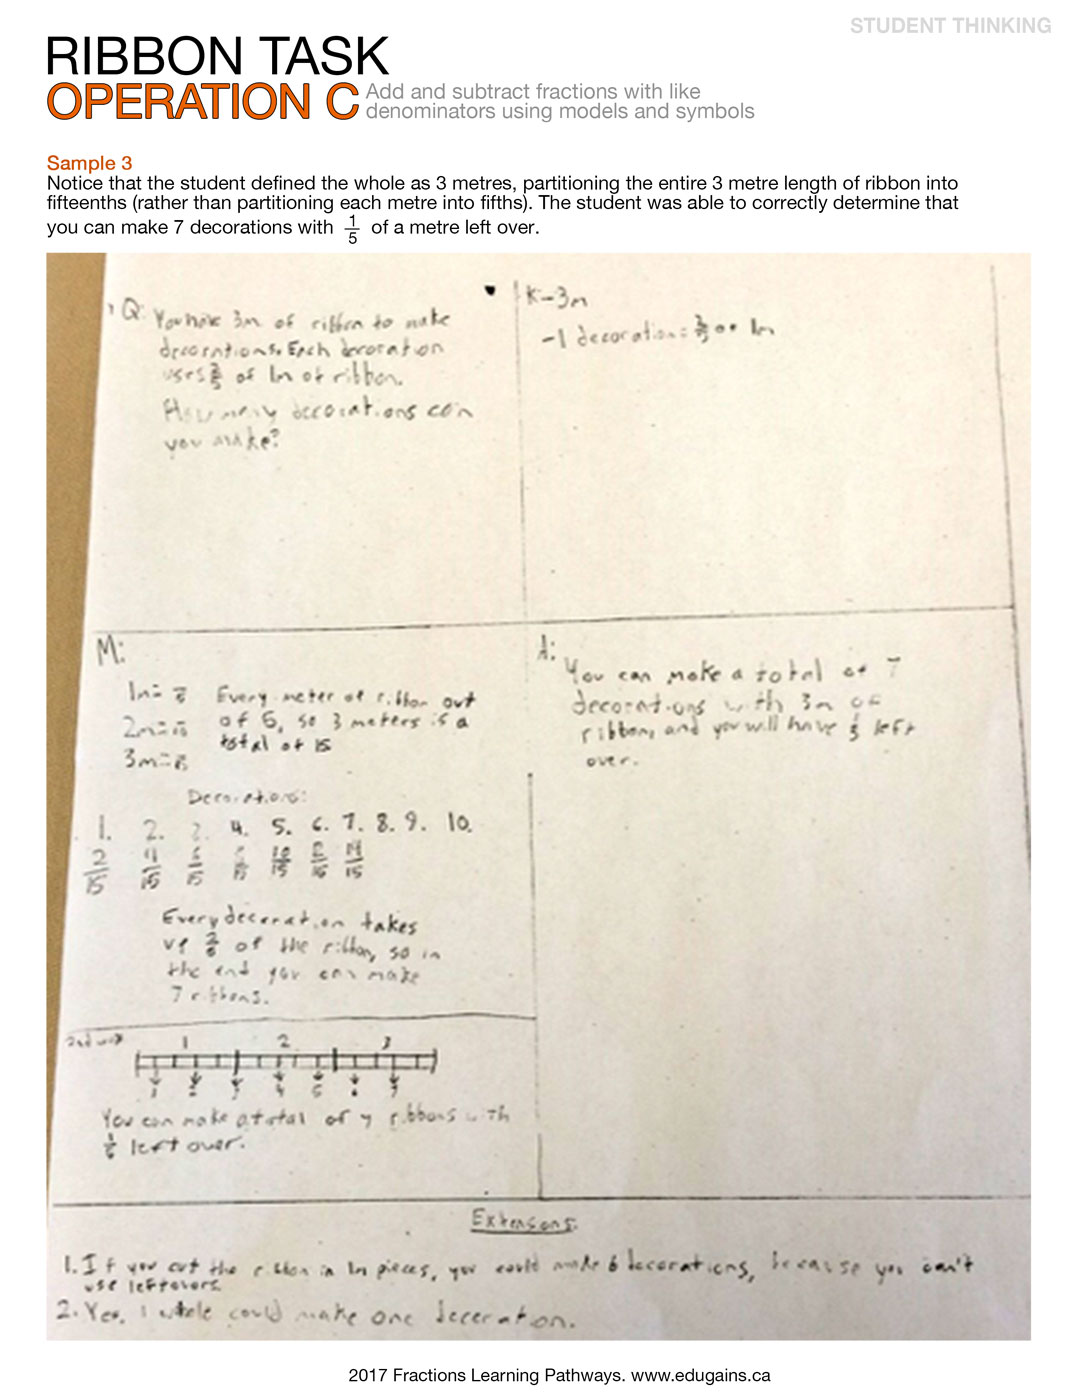 STUDENT THINKING
RIBBON TASK
OPERATION C
Add and subtract fractions with like
denominators using models and symbols
Sample 3
Notice that the student defined the whole as 3 metres, partitioning the entire 3 metre length of ribbon into
fifteenths (rather than partitioning each metre into fifths). The student was able to correctly determine that
you can make 7 decorations with 1/5 of a metre left over.
Q: You have 3m of ribbon to make
decorations. Each decoration
uses 2/5 of 1m of ribbon.
How many decorations can
you make?
K-3m
-1 decoration = 2/5 of 1m
M:
1m=
2m=
3m=
Every meter of ribbon out
of 5, so 3 meters is a
total of 15
Decorations:
1. 2. 3. 4. 5. 6. 7. 8. 9. 10.
2/15 4/15 6/15 8/15 10/15 12/15 14/15
Every decoration takes
up 2/5 of the ribbon, so in
the end you can make
7 ribbons.
2nd way
1 2 3
1 2 3 4 5 6 7
You can make a total of 7 ribbons with
1/5 left over.
A:
You can make a total of 7
decorations with 3m of
ribbon, and you will have 1/5 left
over.
Extensions
1. If you cut the ribbon in 1m pieces, you could make 6 decorations, because you can't
use leftovers.
2. Yes, 1 whole could make one deceration.
2017 Fractions Learning Pathways. www.edugains.ca